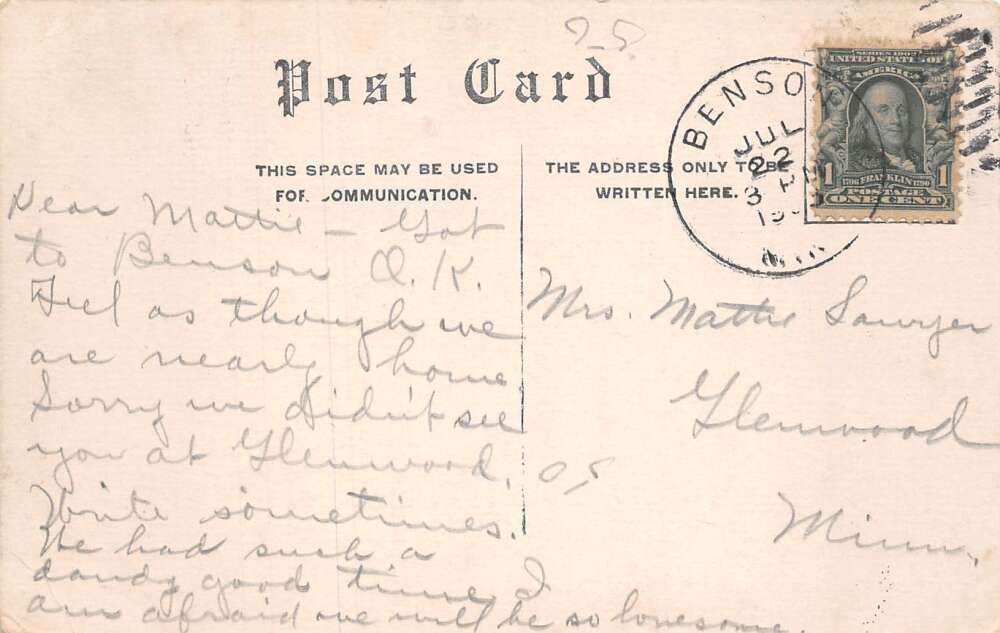 25
Post Card
THIS SPACE MAY BE USED
FOR COMMUNICATION.
THE ADDRESS ONLY TO BE
WRITTEN HERE.
BENSON
JUL
22
3 PM
SERIES 1902
UNITED STATES OF
AMERICA
1 1706 FRANKLIN 1790 1
POSTAGE
ONE CENT
Dear Mattie – Got
to Benson O.K.
Feel as though we
are nearly home
Sorry we didn't see
you at Glenwood.
Write sometimes.
We had such a
dandy good time I
am afraid we will be so lonesome.
05
Mrs. Mattie Sawyer
Glenwood
Minn.